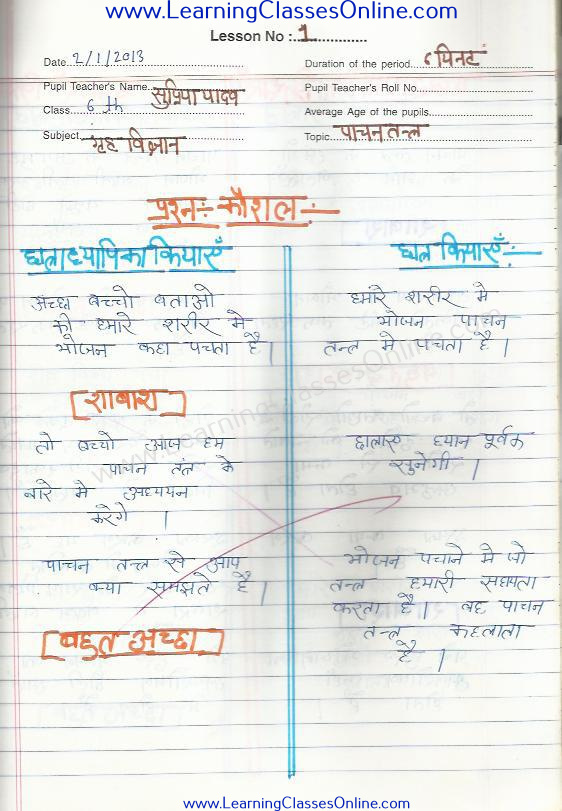 www.LearningClassesOnline.com
Lesson No : 1
Date 2/1/2013
Duration of the period 6 मिनट
Pupil Teacher's Name सुप्रिया यादव
Pupil Teacher's Roll No
Class 6 th
Average Age of the pupils
Subject गृह विज्ञान
Topic पाचन तन्त्र
प्रश्न :- कौशल :-
छात्राध्यापिका क्रियाएँ
अच्छा बच्चो बताओ
की हमारे शरीर मे
भोजन कहा पचता है।
शाबाश
तो बच्चो आज हम
पाचन तंत्र के
बारे मे अध्ययन
करेगे ।
पाचन तन्त्र से आप
क्या समझते है।
बहुत अच्छा
छात्र क्रियाएँ :-
हमारे शरीर मे
भोजन पाचन
तन्त्र मे पचता है।
छात्राए ध्यान पूर्वक
सुनेगी ।
भोजन पचाने मे जो
तन्त्र हमारी सहायता
करता है। वह पाचन
तन्त्र कहलाता
है।
www.LearningClassesOnline.com
www.LearningClassesOnline.com